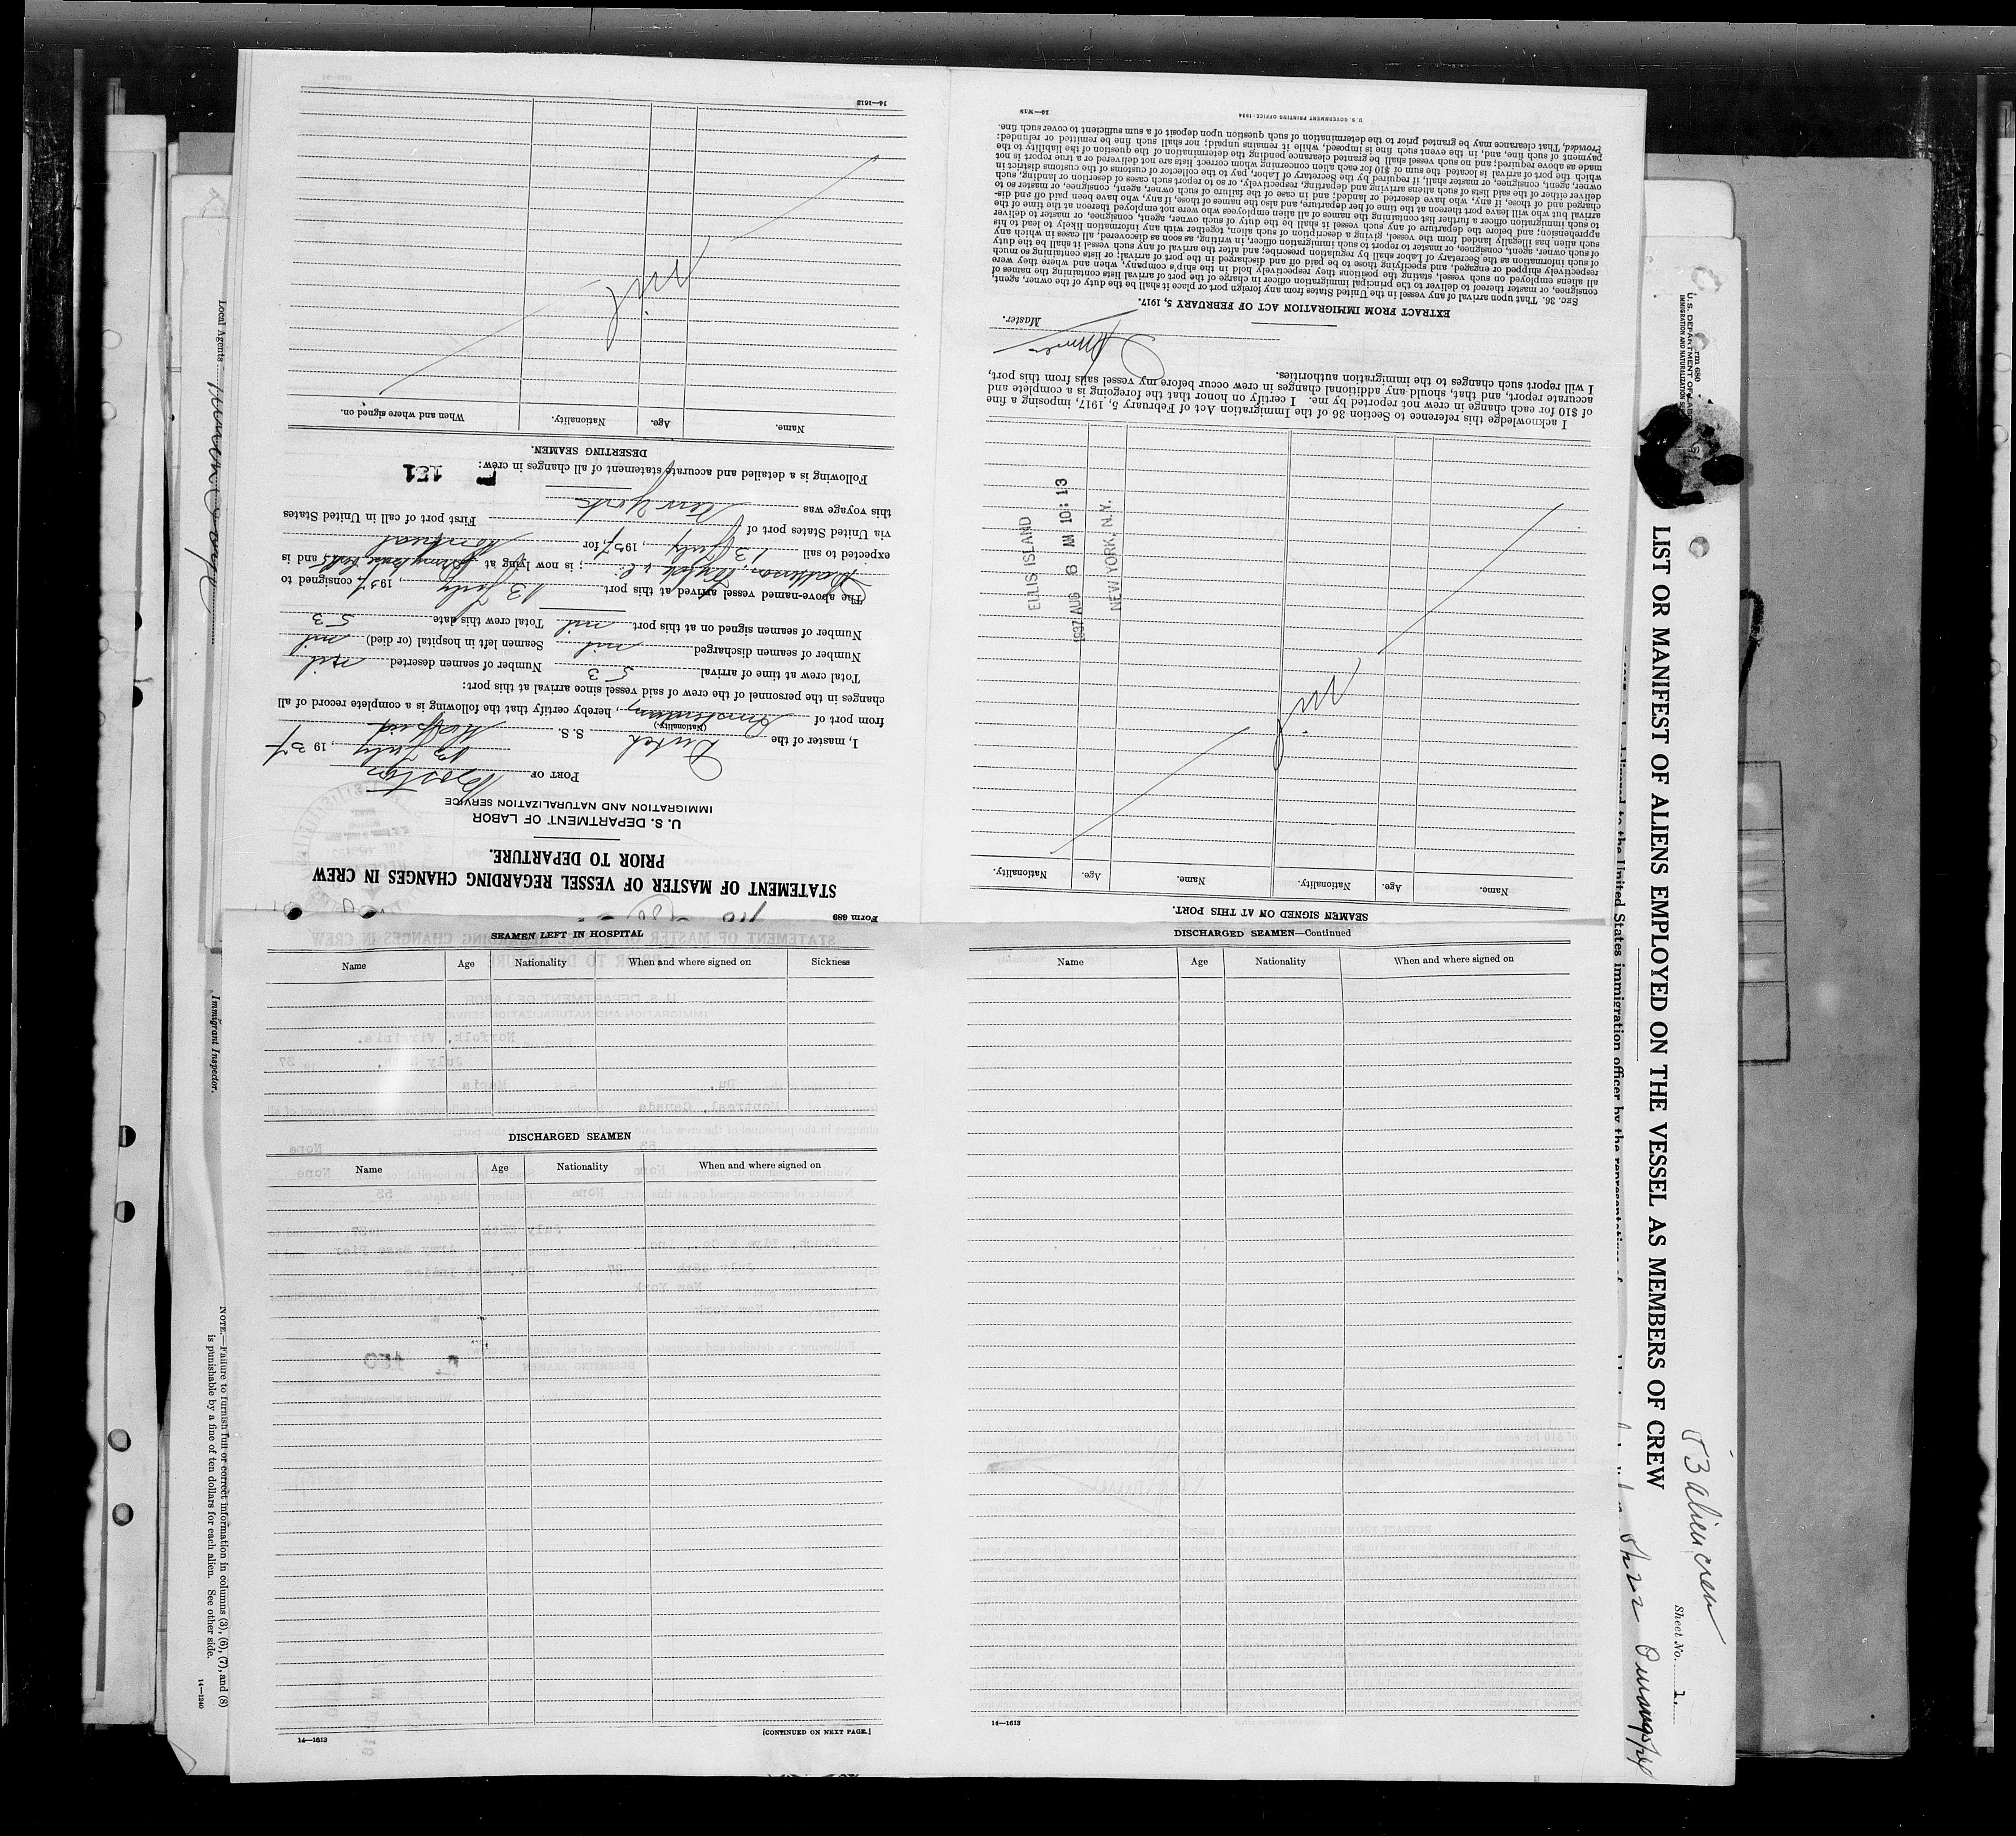 Form 689
STATEMENT OF MASTER OF VESSEL REGARDING CHANGES IN CREW
PRIOR TO DEPARTURE.
U. S. DEPARTMENT OF LABOR
IMMIGRATION AND NATURALIZATION SERVICE
PORT OF Boston
13 July, 1937
I, master of the Dutch S. S.
(Nationality.)
from port of Amsterdam, hereby certify that the following is a complete record of all
changes in the personnel of the crew of said vessel since arrival at this port:
Total crew at time of arrival 53 Number of seamen deserted nil
Number of seamen discharged nil Seamen left in hospital (or died) nil
Number of seamen signed on at this port nil Total crew this date 53
The above-named vessel arrived at this port 13 July, 1937, consigned to
; is now lying at and is
expected to sail 13 July, 1937, for Montreal
via United States port of First port of call in United States
this voyage was New York
Following is a detailed and accurate statement of all changes in crew:
151
DESERTING SEAMEN.
Name. Age. Nationality. When and where signed on.
nil
14—1613
SEAMEN LEFT IN HOSPITAL
Name Age Nationality When and where signed on Sickness
DISCHARGED SEAMEN
Name Age Nationality When and where signed on
14—1613
[CONTINUED ON NEXT PAGE.]
DISCHARGED SEAMEN—Continued
Name Age Nationality When and where signed on
14—1613
SEAMEN SIGNED ON AT THIS PORT.
Name. Age. Nationality. Name. Age. Nationality.
nil
ELLIS ISLAND
1937 AUG 6 AM 10:13
NEW YORK, N.Y.
I acknowledge this reference to Section 36 of the Immigration Act of February 5, 1917, imposing a fine
of $10 for each change in crew not reported by me. I certify on honor that the foregoing is a complete and
accurate report, and that, should any additional changes in crew occur before my vessel sails from this port,
I will report such changes to the immigration authorities.
Master.
EXTRACT FROM IMMIGRATION ACT OF FEBRUARY 5, 1917.
SEC. 36. That upon arrival of any vessel in the United States from any foreign port or place it shall be the duty of the owner, agent,
consignee, or master thereof to deliver to the principal immigration officer in charge of the port of arrival lists containing the names of
all aliens employed on such vessel, stating the positions they respectively hold in the ship's company, when and where they were
respectively shipped or engaged, and specifying those to be paid off and discharged in the port of arrival; or lists containing so much
of such information as the Secretary of Labor shall by regulation prescribe; and after the arrival of any such vessel it shall be the duty
of such owner, agent, consignee, or master to report to such immigration officer, in writing, as soon as discovered, all cases in which any
such alien has illegally landed from the vessel, giving a description of such alien, together with any information likely to lead to his
apprehension; and before the departure of any such vessel it shall be the duty of such owner, agent, consignee, or master to deliver
to such immigration officer a further list containing the names of all alien employees who were not employed thereon at the time of the
arrival but who will leave port thereon at the time of her departure, and also the names of those, if any, who have been paid off and dis-
charged and of those, if any, who have deserted or landed; and in case of the failure of such owner, agent, consignee, or master so to
deliver either of the said lists of such aliens arriving and departing, respectively, or so to report such cases of desertion or landing, such
owner, agent, consignee, or master, shall, if required by the Secretary of Labor, pay to the collector of customs of the customs district in
which the port of arrival is located the sum of $10 for each alien concerning whom correct lists are not delivered or a true report is not
made as above required; and no such vessel shall be granted clearance pending the determination of the question of the liability to the
payment of such fine, and, in the event such fine is imposed, while it remains unpaid; nor shall such fine be remitted or refunded:
Provided, That clearance may be granted prior to the determination of such question upon deposit of a sum sufficient to cover such fine.
U. S. GOVERNMENT PRINTING OFFICE: 1934
LIST OR MANIFEST OF ALIENS EMPLOYED ON THE VESSEL AS MEMBERS OF CREW
rm 680
U. S. DEPARTMENT OF LABOR
IMMIGRATION AND NATURALIZATION
53 alien crew
Sheet No. 1.
to the United States immigration officer by the representatives of
Local Agents
Immigrant Inspector.
NOTE.—Failure to furnish full or correct information in columns (3), (6), (7), and (8)
is punishable by a fine of ten dollars for each alien. See other side.
14—1240